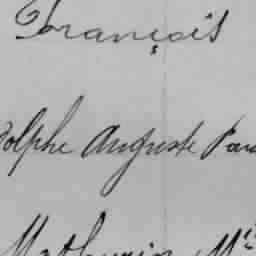 François
dolphe Auguste Pau
Mathurin Mi